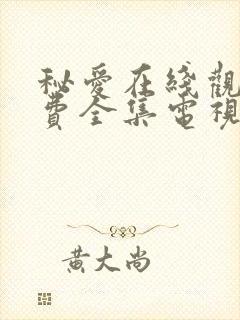 秘愛在綫觀
費全集電視
黃大尚